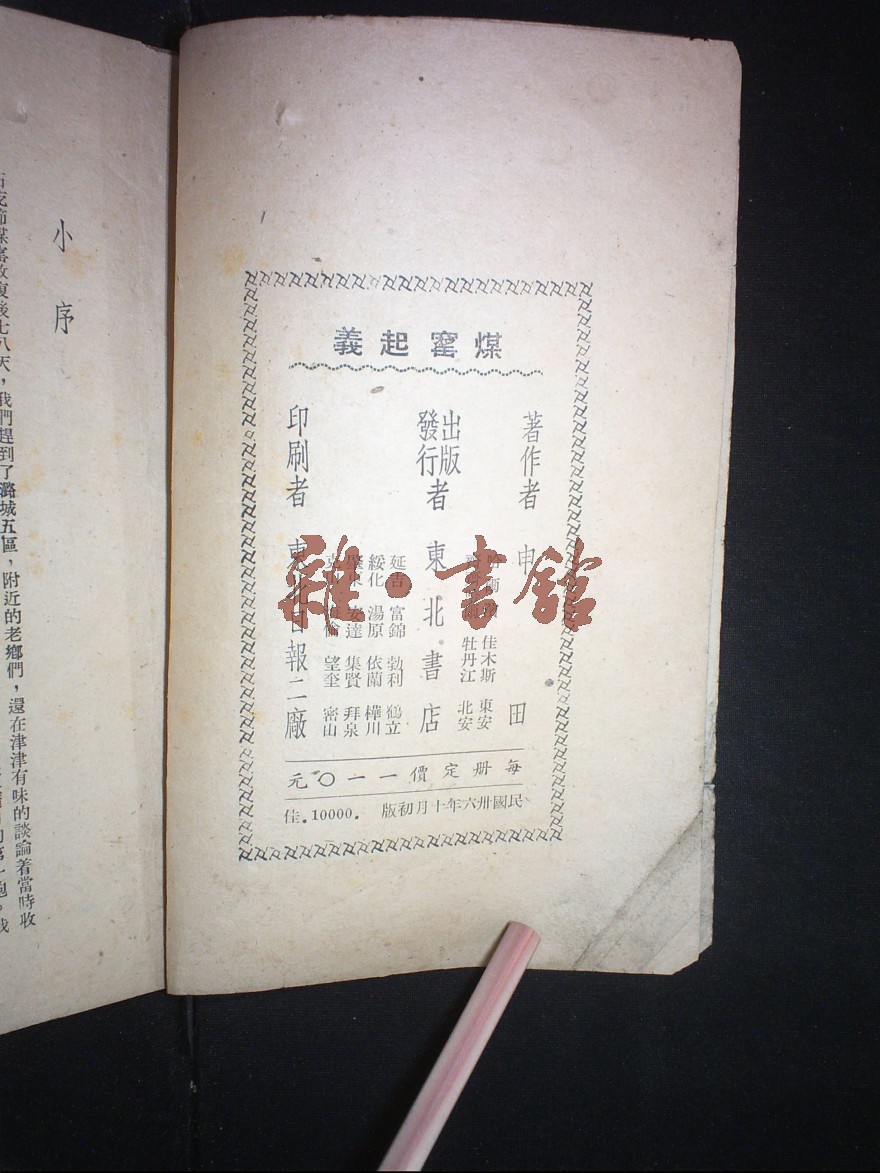 煤窰起義
著作者 申 田
出版
發行者 東北書店
佳木斯 東安
牡丹江 北安
延吉 富錦 勃利 鶴立
綏化 湯原 依蘭 樺川
安達 集賢 拜泉
望奎 密山
印刷者 東北日報二廠
每册定價一一〇元
民國卅六年十月初版 . 10000. 佳
小序
煤窰收復後七八天，我們趕到了潞城五區，附近的老鄉們，還在津津有味的談論着當時收
雜·書館